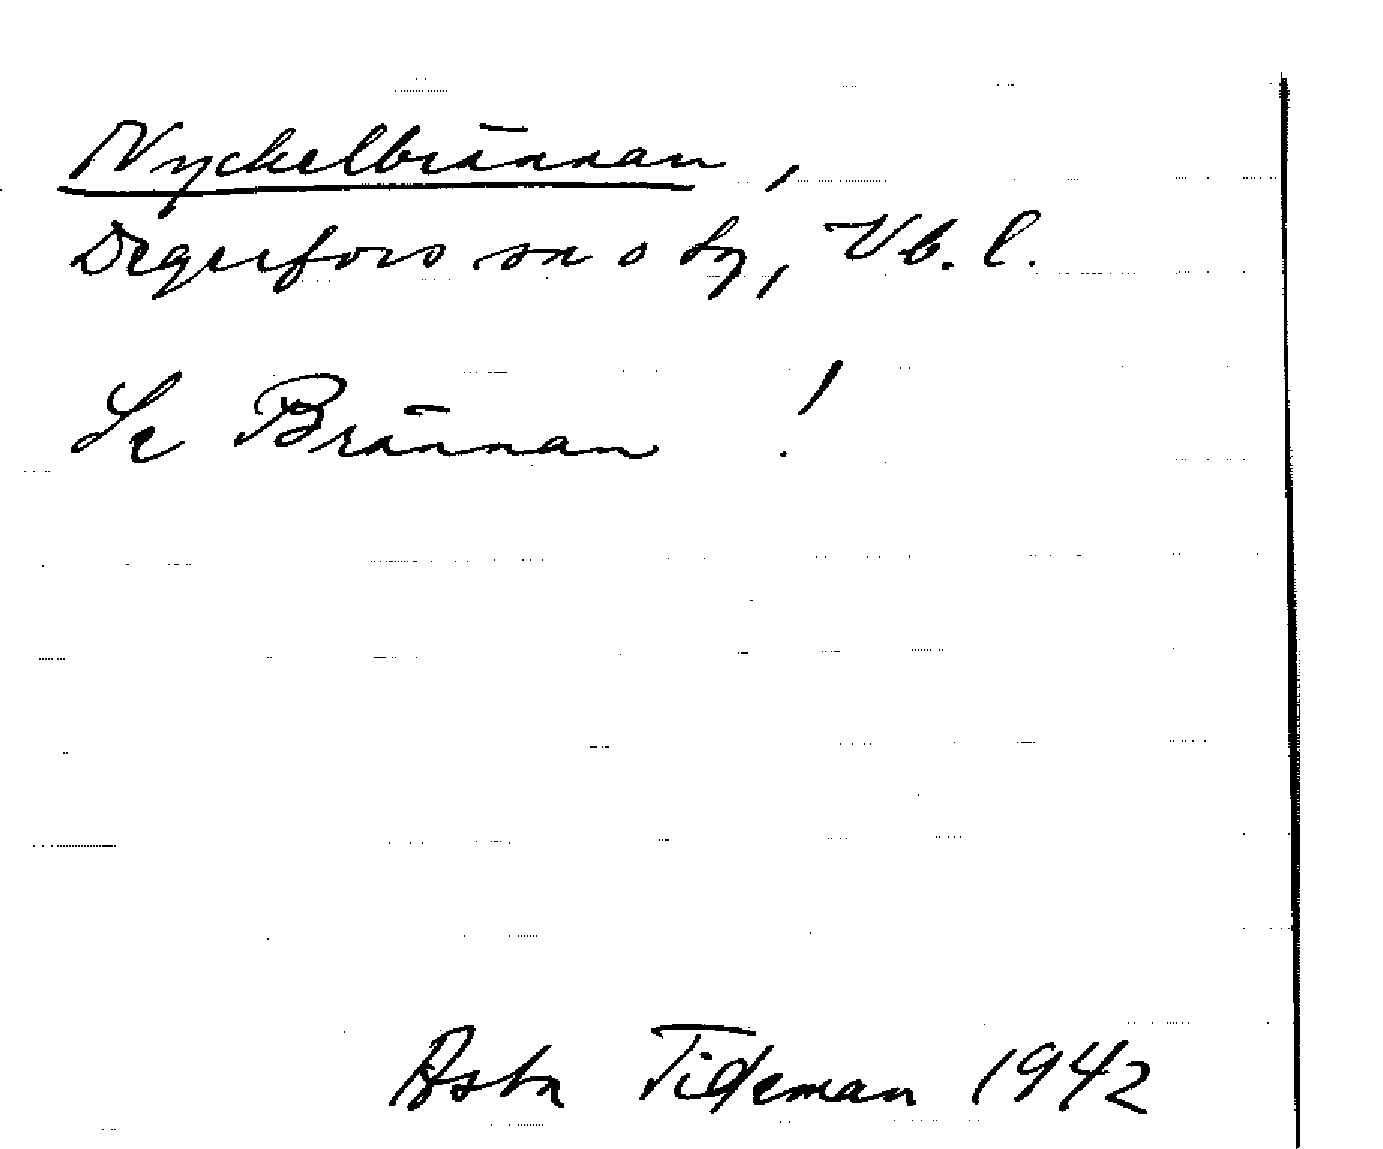 Nyckelbrännan,
Degerfors sn o by, Vb. l.
Se Brännan!
Asta Tideman 1942